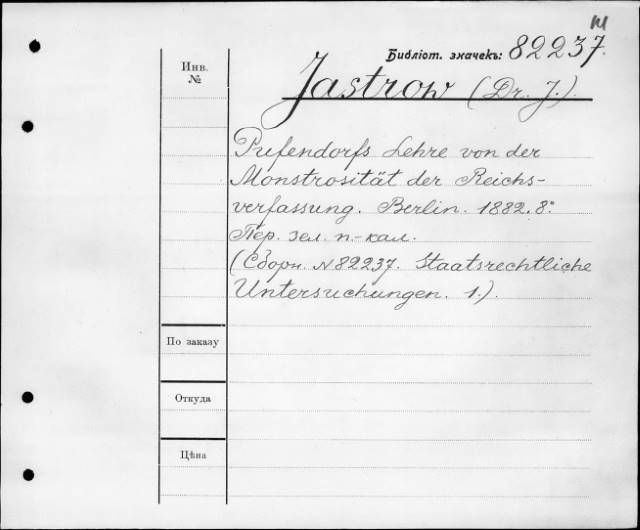 М
Библіот. значекъ: 82237.
Инв.
№
Jastrow (Dr. J.).
Pufendorfs Lehre von der
Monstrosität der Reichs-
verfassung. Berlin. 1882. 8°.
Пер. зел. п.-кал.
(Сборн. №82237. Staatsrechtliche
Untersuchungen. 1.).
По заказу
Откуда
Цѣна